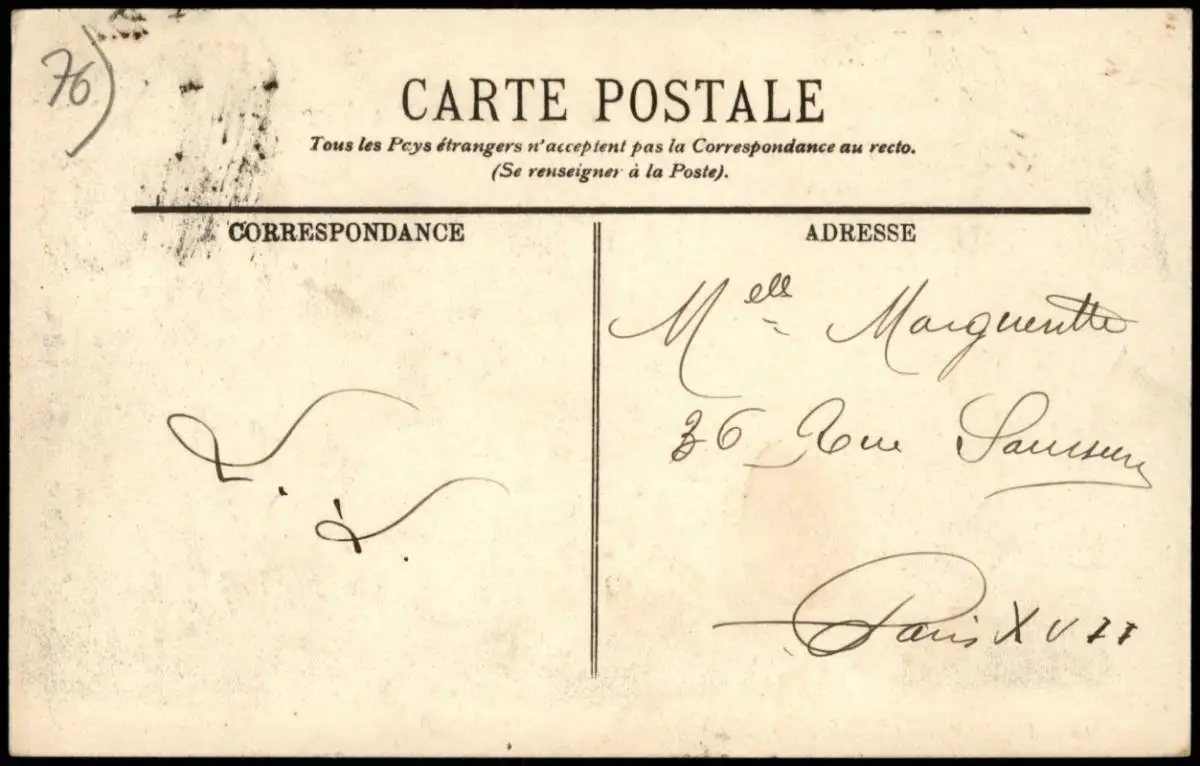 76)
CARTE POSTALE
Tous les Pays étrangers n'acceptent pas la Correspondance au recto.
(Se renseigner à la Poste).
CORRESPONDANCE
ADRESSE
Melle Marguerite
36 Rue Saussure
Paris XVII